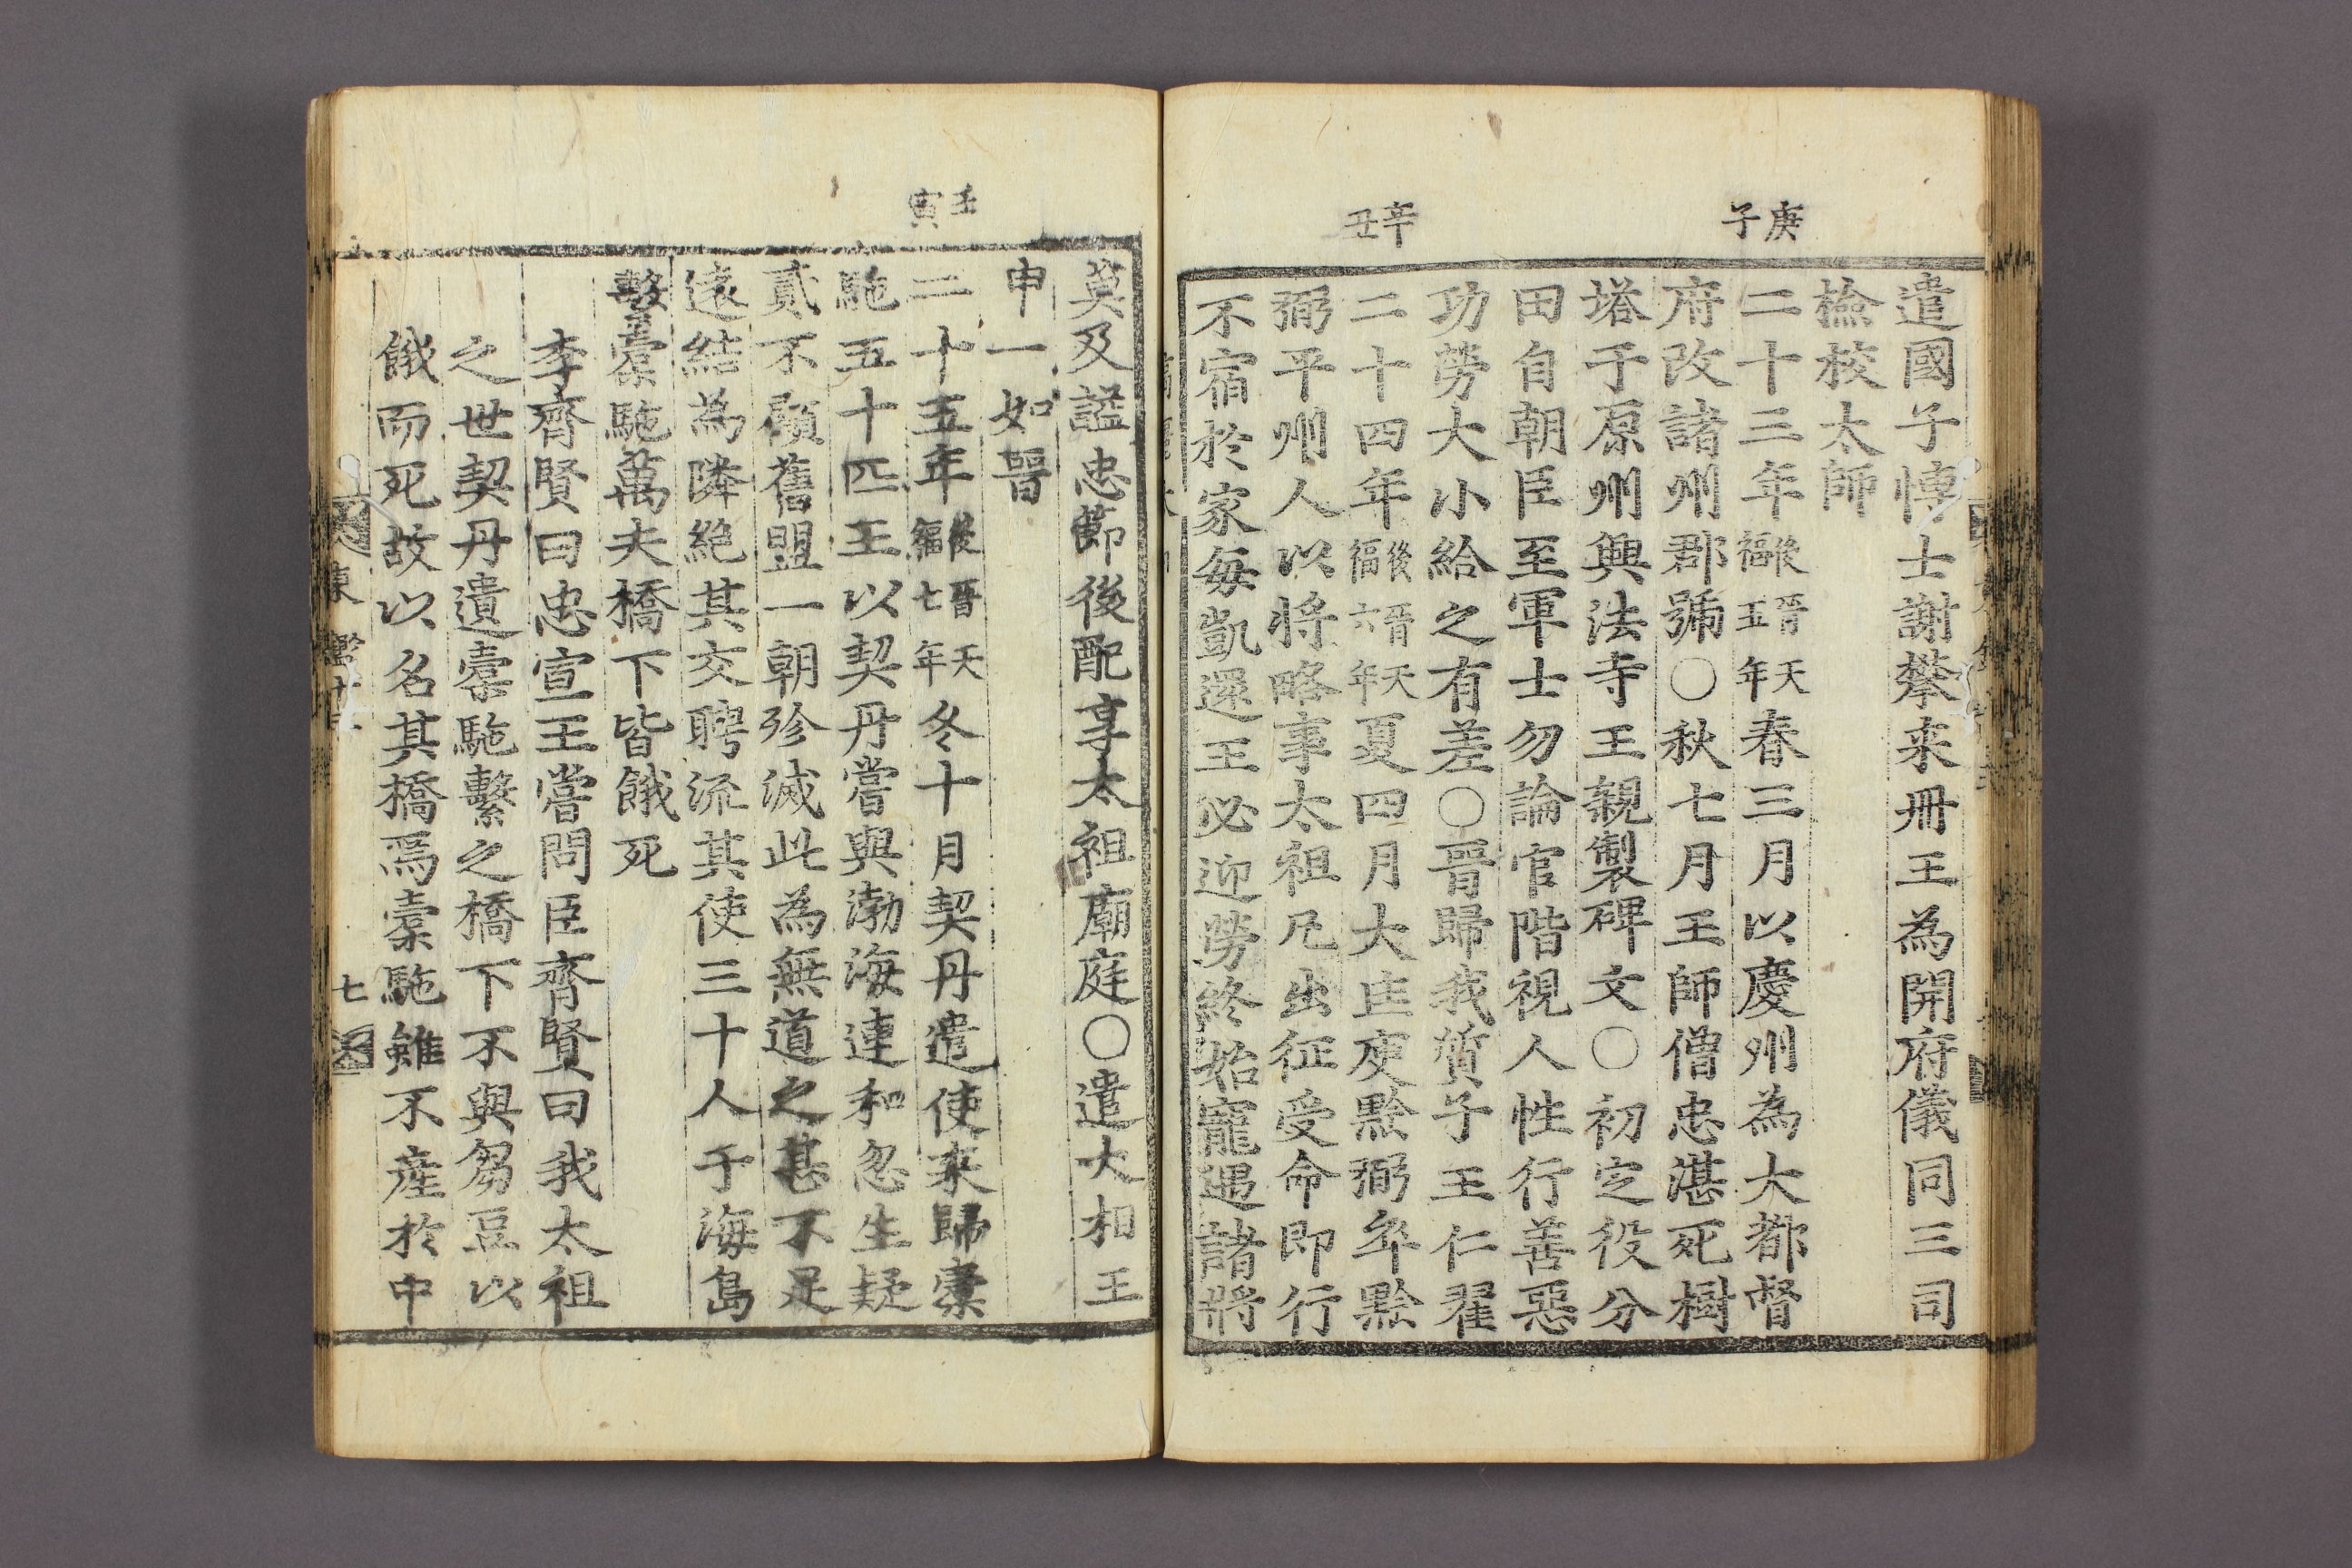 遣國子博士謝攀来冊王為開府儀同三司
檢校太師
庚子
二十三年後晋天福五年春三月以慶州為大都督
府改諸州郡號○秋七月王師僧忠湛死樹
塔于原州興法寺王親製碑文○初定役分
田自朝臣至軍士勿論官階視人性行善惡
功勞大小給之有差○晋歸我質子王仁翟
辛丑
二十四年後晋天福六年夏四月大匡庾黔弼卒黔
弼平州人以将略事太祖凡出征受命即行
不宿於家每凱還王必迎勞終始寵遇諸將
莫及謚忠節後配享太祖廟庭○遣大相王
申一如晋
壬寅
二十五年後晋天福七年冬十月契丹遣使来歸橐
駞五十匹王以契丹嘗與渤海連和忽生疑
貳不顧舊盟一朝殄滅此為無道之甚不足
遠結為隣絶其交聘流其使三十人于海島
繫橐駞萬夫橋下皆餓死
李齊賢曰忠宣王嘗問臣齊賢曰我太祖
之世契丹遺橐駞繫之橋下不與芻豆以
餓而死故以名其橋焉橐駞雖不産於中
東鑑十三
七